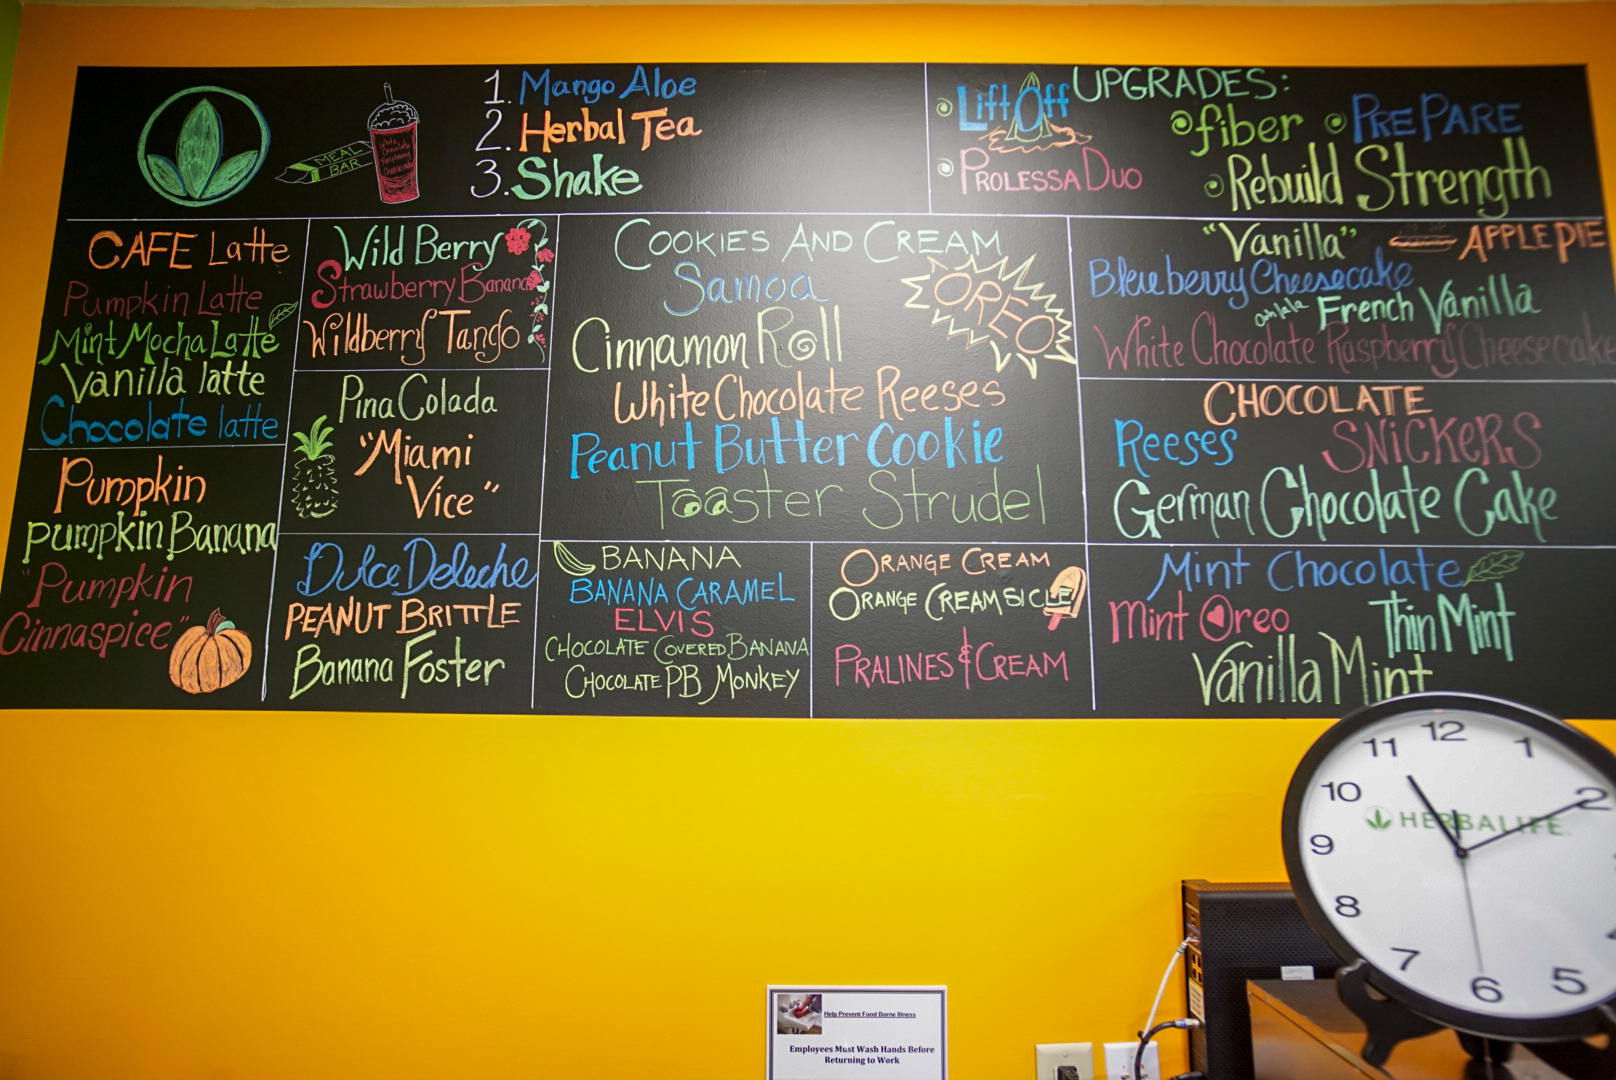 1. Mango Aloe
2. Herbal Tea
3. Shake
MEAL
BAR
UPGRADES:
Lift Off
fiber
PREPARE
PROLESSA DUO
Rebuild Strength
CAFE Latte
Pumpkin Latte
Mint Mocha Latte
Vanilla latte
Chocolate latte
Pumpkin
pumpkin Banana
"Pumpkin
Cinnaspice"
Wild Berry
Strawberry Banana
Wildberry Tango
Pina Colada
"Miami
Vice"
Dulce Deleche
PEANUT BRITTLE
Banana Foster
COOKIES AND CREAM
Samoa
OREO
Cinnamon Roll
White Chocolate Reeses
Peanut Butter Cookie
Toaster Strudel
BANANA
BANANA CARAMEL
ELVIS
CHOCOLATE COVERED BANANA
CHOCOLATE PB MONKEY
ORANGE CREAM
ORANGE CREAMSICLE
PRALINES & CREAM
"Vanilla"
APPLE PIE
Blueberry Cheesecake
ooh lala French Vanilla
White Chocolate Raspberry Cheesecake
CHOCOLATE
Reeses
SNICKERS
German Chocolate Cake
Mint Chocolate
Mint Oreo
Thin Mint
Vanilla Mint
11 12 1
10 2
HERBALIFE
9
8
7 6 5
Help Prevent Food Borne Illness
Employees Must Wash Hands Before
Returning to Work